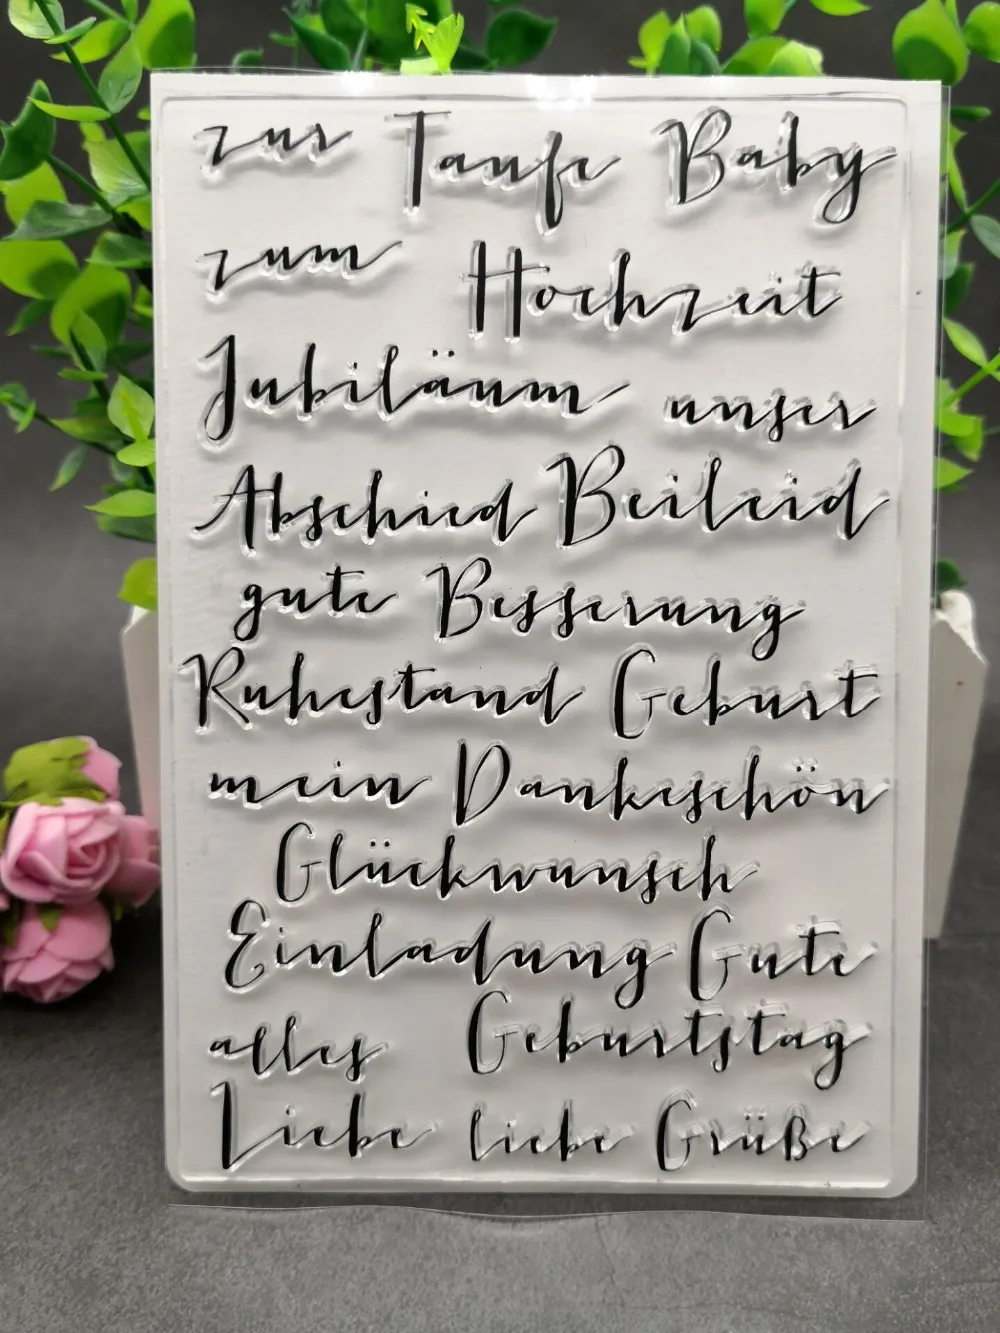 zur Taufe Baby
zum Hochzeit
Jubiläum unser
Abschied Beileid
gute Besserung
Ruhestand Geburt
mein Dankeschön
Glückwunsch
Einladung Gute
alles Geburtstag
Liebe liebe Grüße